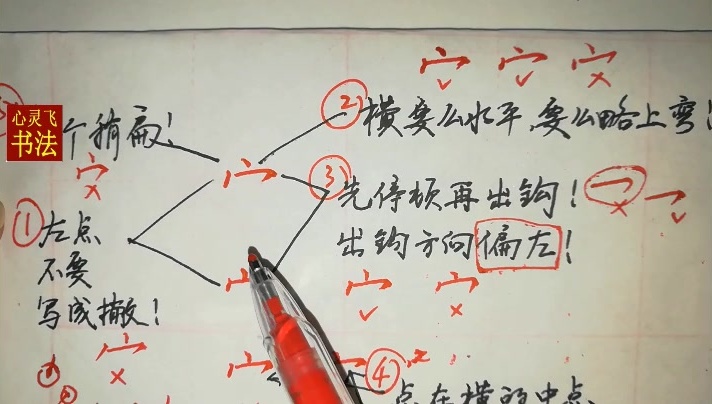 心灵飞
书法
个稍扁!
② 横要么水平,要么略上弯!
③ 先停顿再出钩!
出钩方向偏左!
① 左点
不要
写成撇!
④ 点在横的中点